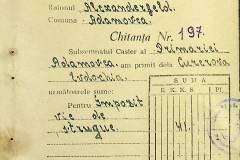 Raionul Alexanderfeld.
Comuna Adamovca.
Chitanța Nr. 197.
Subsemnatul Casier al Primăriei
Adamovca am primit dela
Evdochia
următoarele sume:
SUMA
Pentru Impozit
vie de
strugure
41